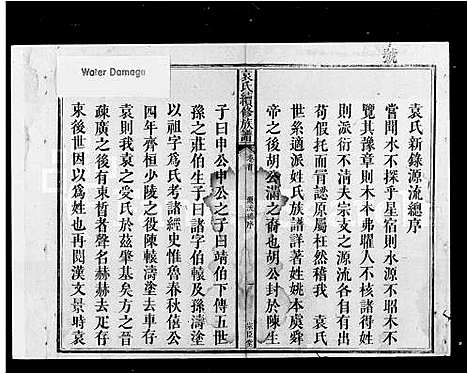 號
Water Damage
袁氏新錄源流總序
嘗聞水不探乎星宿則水源不昭木不
覽其豫章則木本弗曜人不核諸得姓
則派衍不清夫宗支之源流各自有出
苟假托而冒認原屬枉然稽我 袁氏
世系適派姓氏族譜詳著姓姚本虞舜
帝之後胡公滿之裔也胡公封於陳生
袁氏續修族譜
卷首
宗臣堂
子曰申公申公之子曰靖伯下傳五世
孫之莊伯生子曰諸字伯轅及孫濤塗
以祖字為氏考諸經史惟魯春秋僖公
四年齊桓少陵之役陳轅濤塗去車存
袁則我袁之受氏於茲肇基矣方之晉
疎廣之後有東晳者聲名赫赫去疋存
束後世因以為姓也再閱漢文景時袁